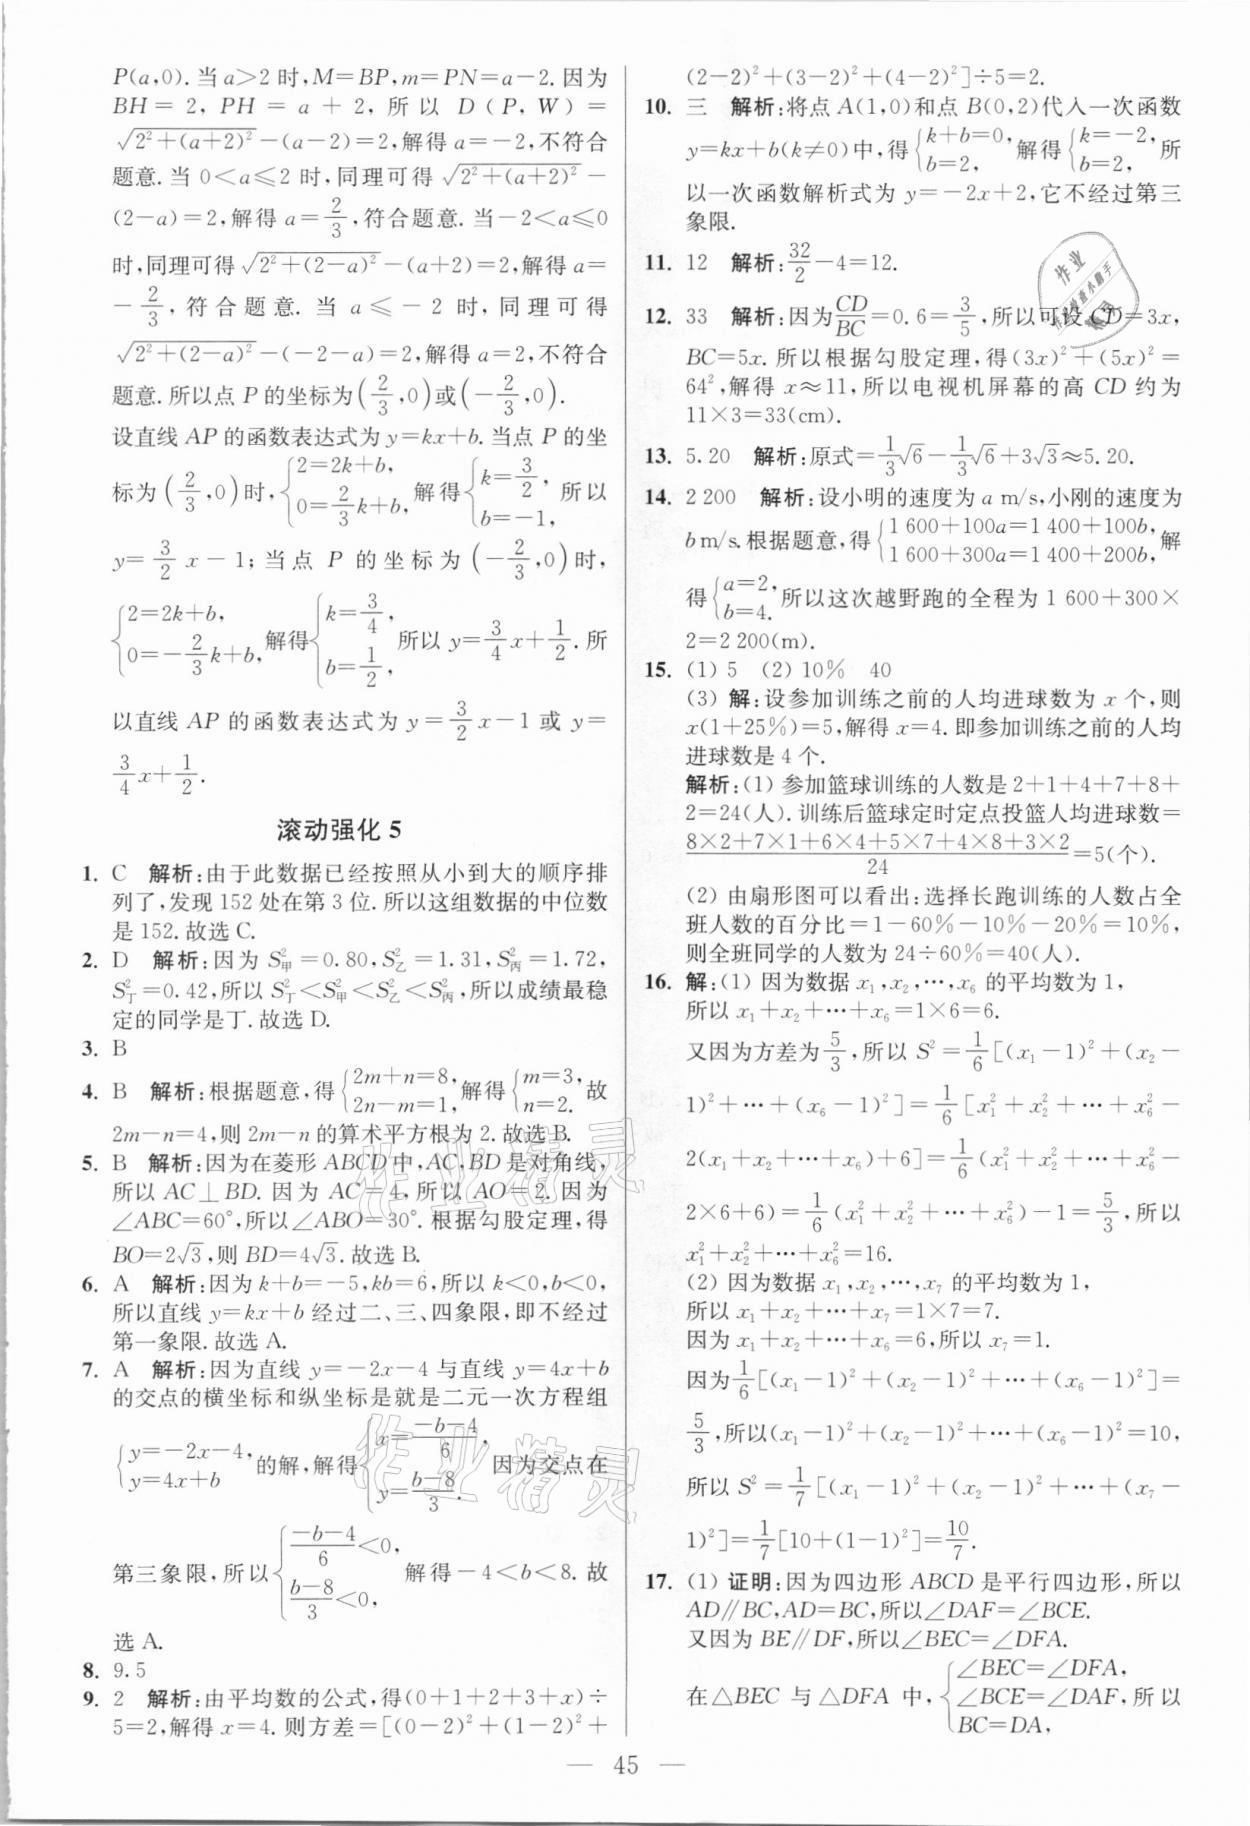 P(a,0). 当 a>2 时, M=BP, m=PN=a-2. 因为
BH=2, PH=a+2, 所以 D(P,W)=
√(2²+(a+2)²)-(a-2)=2, 解得 a=-2, 不符合
题意. 当 0<a≤2 时, 同理可得 √(2²+(a+2)²)-
(2-a)=2, 解得 a=2/3, 符合题意. 当-2<a≤0
时, 同理可得 √(2²+(2-a)²)-(a+2)=2, 解得 a=
-2/3, 符合题意. 当 a≤-2 时, 同理可得
√(2²+(2-a)²)-(-2-a)=2, 解得 a=2, 不符合
题意. 所以点 P 的坐标为(2/3,0)或(-2/3,0).
设直线 AP 的函数表达式为 y=kx+b. 当点 P 的坐
标为(2/3,0)时, {2=2k+b, 0=2/3k+b, 解得{k=3/2, b=-1, 所以
y=3/2x-1; 当点 P 的坐标为(-2/3,0)时,
{2=2k+b, 0=-2/3k+b, 解得{k=3/4, b=1/2, 所以 y=3/4x+1/2. 所
以直线 AP 的函数表达式为 y=3/2x-1 或 y=
3/4x+1/2.
滚动强化 5
1. C 解析:由于此数据已经按照从小到大的顺序排
列了,发现 152 处在第 3 位. 所以这组数据的中位数
是 152. 故选 C.
2. D 解析:因为 S²甲=0.80, S²乙=1.31, S²丙=1.72,
S²丁=0.42, 所以 S²丁<S²甲<S²乙<S²丙, 所以成绩最稳
定的同学是丁. 故选 D.
3. B
4. B 解析:根据题意,得{2m+n=8, 2n-m=1, 解得{m=3, n=2. 故
2m-n=4, 则 2m-n 的算术平方根为 2. 故选 B.
5. B 解析:因为在菱形 ABCD 中, AC, BD 是对角线,
所以 AC⊥BD. 因为 AC=4, 所以 AO=2. 因为
∠ABC=60°, 所以∠ABO=30°. 根据勾股定理, 得
BO=2√3, 则 BD=4√3. 故选 B.
6. A 解析:因为 k+b=-5, kb=6, 所以 k<0, b<0,
所以直线 y=kx+b 经过二、三、四象限, 即不经过
第一象限. 故选 A.
7. A 解析:因为直线 y=-2x-4 与直线 y=4x+b
的交点的横坐标和纵坐标是就是二元一次方程组
{y=-2x-4, y=4x+b 的解, 解得{x=(-b-4)/6, y=(b-8)/3. 因为交点在
第三象限, 所以{(-b-4)/6<0, (b-8)/3<0, 解得-4<b<8. 故
选 A.
8. 9.5
9. 2 解析:由平均数的公式, 得(0+1+2+3+x)÷
5=2, 解得 x=4. 则方差=[(0-2)²+(1-2)²+
(2-2)²+(3-2)²+(4-2)²]÷5=2.
10. 三 解析:将点 A(1,0)和点 B(0,2)代入一次函数
y=kx+b(k≠0)中, 得{k+b=0, b=2, 解得{k=-2, b=2, 所
以一次函数解析式为 y=-2x+2, 它不经过第三
象限.
11. 12 解析:32/2-4=12.
12. 33 解析:因为CD/BC=0.6=3/5, 所以可设 CD=3x,
BC=5x. 所以根据勾股定理, 得(3x)²+(5x)²=
64², 解得 x≈11, 所以电视机屏幕的高 CD 约为
11×3=33(cm).
13. 5.20 解析:原式=1/3√6-1/3√6+3√3≈5.20.
14. 2 200 解析:设小明的速度为 a m/s, 小刚的速度为
b m/s. 根据题意, 得{1 600+100a=1 400+100b, 1 600+300a=1 400+200b, 解
得{a=2, b=4. 所以这次越野跑的全程为 1 600+300×
2=2 200(m).
15. (1) 5 (2) 10% 40
(3) 解:设参加训练之前的人均进球数为 x 个, 则
x(1+25%)=5, 解得 x=4. 即参加训练之前的人均
进球数是 4 个.
解析:(1) 参加篮球训练的人数是 2+1+4+7+8+
2=24(人). 训练后篮球定时定点投篮人均进球数=
(8×2+7×1+6×4+5×7+4×8+3×2)/24=5(个).
(2) 由扇形图可以看出:选择长跑训练的人数占全
班人数的百分比=1-60%-10%-20%=10%,
则全班同学的人数为 24÷60%=40(人).
16. 解:(1) 因为数据 x₁,x₂,…,x₆ 的平均数为 1,
所以 x₁+x₂+…+x₆=1×6=6.
又因为方差为5/3, 所以 S²=1/6[(x₁-1)²+(x₂-
1)²+…+(x₆-1)²]=1/6[x₁²+x₂²+…+x₆²-
2(x₁+x₂+…+x₆)+6]=1/6(x₁²+x₂²+…+x₆²-
2×6+6)=1/6(x₁²+x₂²+…+x₆²)-1=5/3, 所以
x₁²+x₂²+…+x₆²=16.
(2) 因为数据 x₁,x₂,…,x₇ 的平均数为 1,
所以 x₁+x₂+…+x₇=1×7=7.
因为 x₁+x₂+…+x₆=6, 所以 x₇=1.
因为1/6[(x₁-1)²+(x₂-1)²+…+(x₆-1)²]=
5/3, 所以(x₁-1)²+(x₂-1)²+…+(x₆-1)²=10,
所以 S²=1/7[(x₁-1)²+(x₂-1)²+…+(x₇-
1)²]=1/7[10+(1-1)²]=10/7.
17. (1) 证明:因为四边形 ABCD 是平行四边形, 所以
AD∥BC, AD=BC, 所以∠DAF=∠BCE.
又因为 BE∥DF, 所以∠BEC=∠DFA.
在△BEC 与△DFA 中, {∠BEC=∠DFA, ∠BCE=∠DAF, BC=DA, 所以
— 45 —
作业精灵
作业精灵
作业